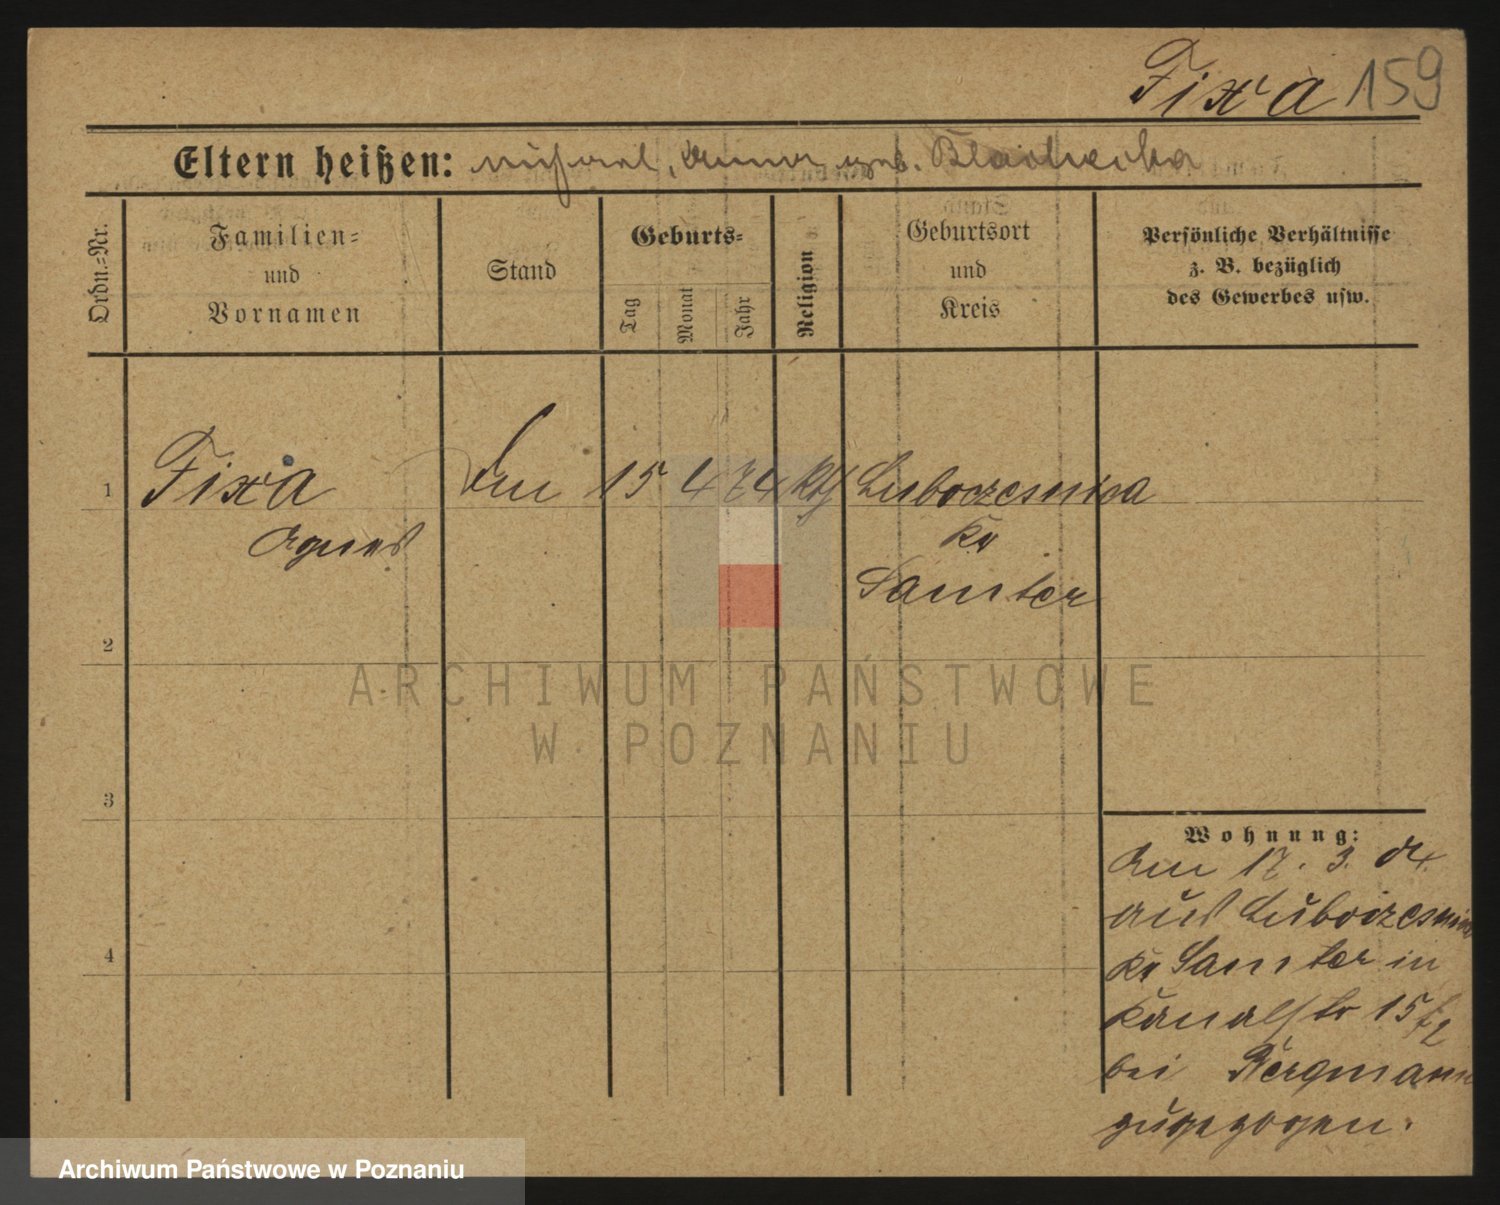 Fixa 159
Eltern heißen: Michael, Anna geb.
Ordn.=Nr.
Familien=
und
Vornamen
Stand
Geburts=
Tag
Monat
Jahr
Religion
Geburtsort
und
Kreis
Persönliche Verhältnisse
z. B. bezüglich
des Gewerbes usw.
1 Fixa 15 4 74 kth Luboczesnica
Agnes Kr
Samter
2
3
4
Wohnung:
Am 17. 3. 04.
aus Luboczesnica
Kr Samter in
Kanalstr 15
bei Bergmann
zugezogen.
ARCHIWUM PAŃSTWOWE
W POZNANIU
Archiwum Państwowe w Poznaniu